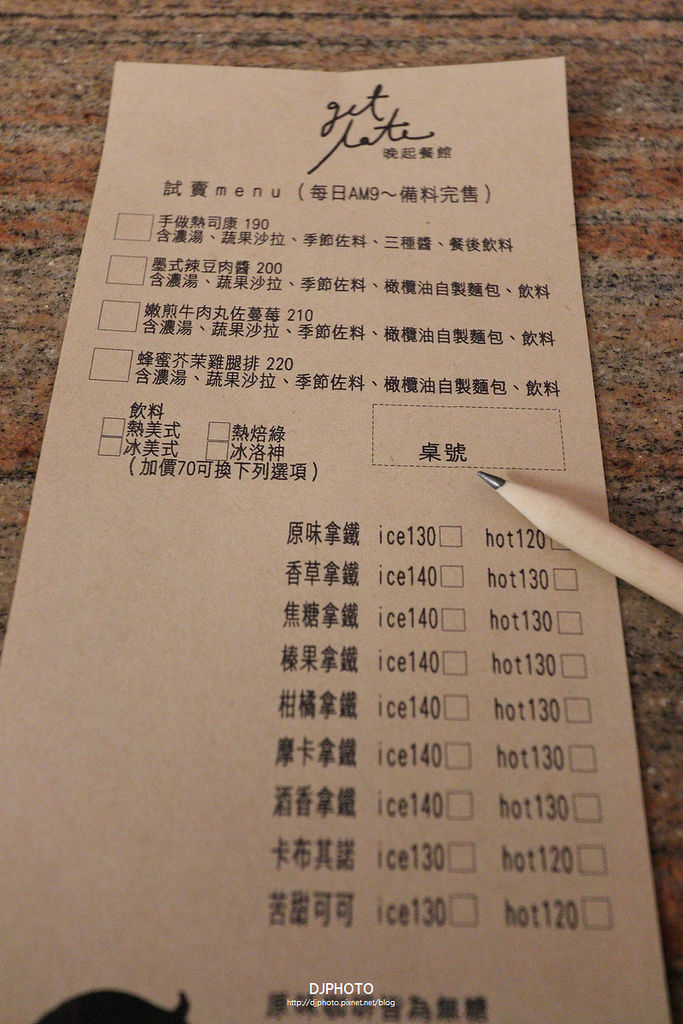 get
late
晚起餐館
試賣menu（每日AM9～備料完售）
手做熱司康 190
含濃湯、蔬果沙拉、季節佐料、三種醬、餐後飲料
墨式辣豆肉醬 200
含濃湯、蔬果沙拉、季節佐料、橄欖油自製麵包、飲料
嫩煎牛肉丸佐蔓莓 210
含濃湯、蔬果沙拉、季節佐料、橄欖油自製麵包、飲料
蜂蜜芥茉雞腿排 220
含濃湯、蔬果沙拉、季節佐料、橄欖油自製麵包、飲料
飲料
熱美式 熱焙綠
冰美式 冰洛神
（加價70可換下列選項）
桌號
原味拿鐵 ice130 hot120
香草拿鐵 ice140 hot130
焦糖拿鐵 ice140 hot130
榛果拿鐵 ice140 hot130
柑橘拿鐵 ice140 hot130
摩卡拿鐵 ice140 hot130
酒香拿鐵 ice140 hot130
卡布其諾 ice130 hot120
苦甜可可 ice130 hot120
原味 皆為無糖
DJPHOTO
http://djphoto.pixnet.net/blog